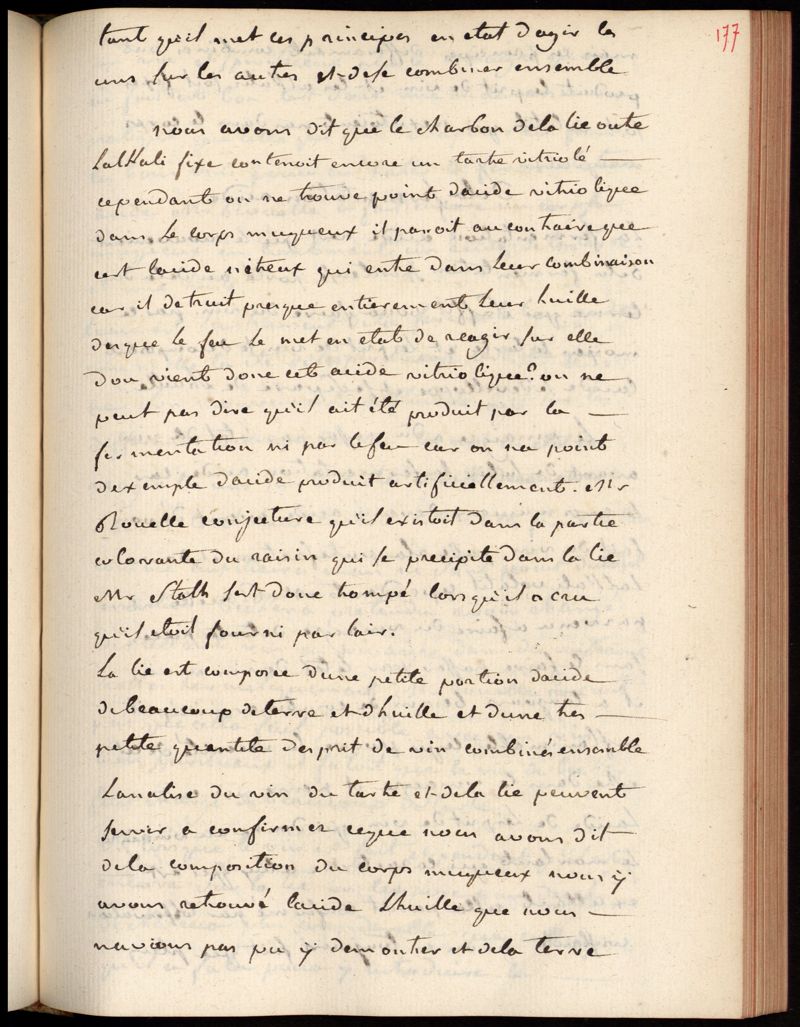 177
tant qu'il met ces principes en etat d'agir les
uns sur les autres et de se combiner ensemble
nous avons dit que le charbon de la lie outre
Lalkali fixe contenoit encore un tartre vitriolé —
cependant on ne trouve point dacide vitriolique
dans le corps muqueux il paroit au contraire que
cest lacide nitreux qui entre dans leur combinaison
car il detruit presque entierement leur huille
des que le feu le met en etat de reagir sur elle
dou vient donc cet acide vitriolique? on ne
peut pas dire qu'il ait été produit par la —
fermentation ni par le feu car on na point
dexemple dacide produit artificiellement. Mr
Rouelle conjecture qu'il existoit dans la partie
colorante du raisin qui se precipite dans la lie
Mr Stalh sest donc trompé lorsqu'il a cru
qu'il etoit fourni par lair.
La lie est composée dune petite portion dacide
de beaucoup de terre et dhuille et dune tres —
petite quantité desprit de vin combinés ensemble
Lanalise du vin du tartre et de la lie peuvent
servir a confirmer ce que nous avons dit
de la composition du corps muqueux nous ÿ
avons retrouvé lacide Lhuille que nous —
navions pas pu ÿ demontrer et de la terre